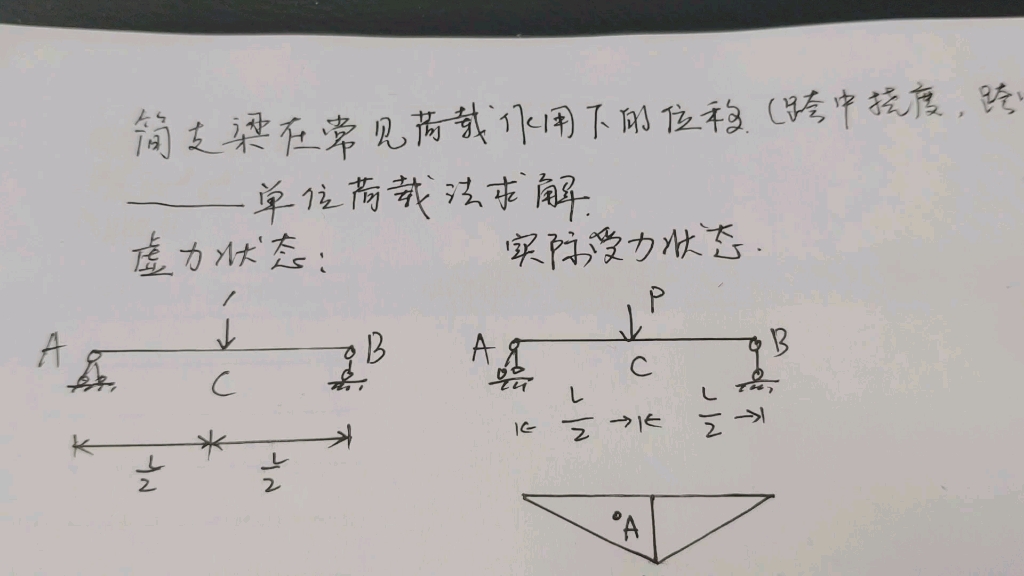 简支梁在常见荷载作用下的位移.(跨中挠度,跨
——单位荷载法求解.
虚力状态: 实际受力状态.
1 P
A B A B
C C
L/2 L/2
L/2 L/2
A